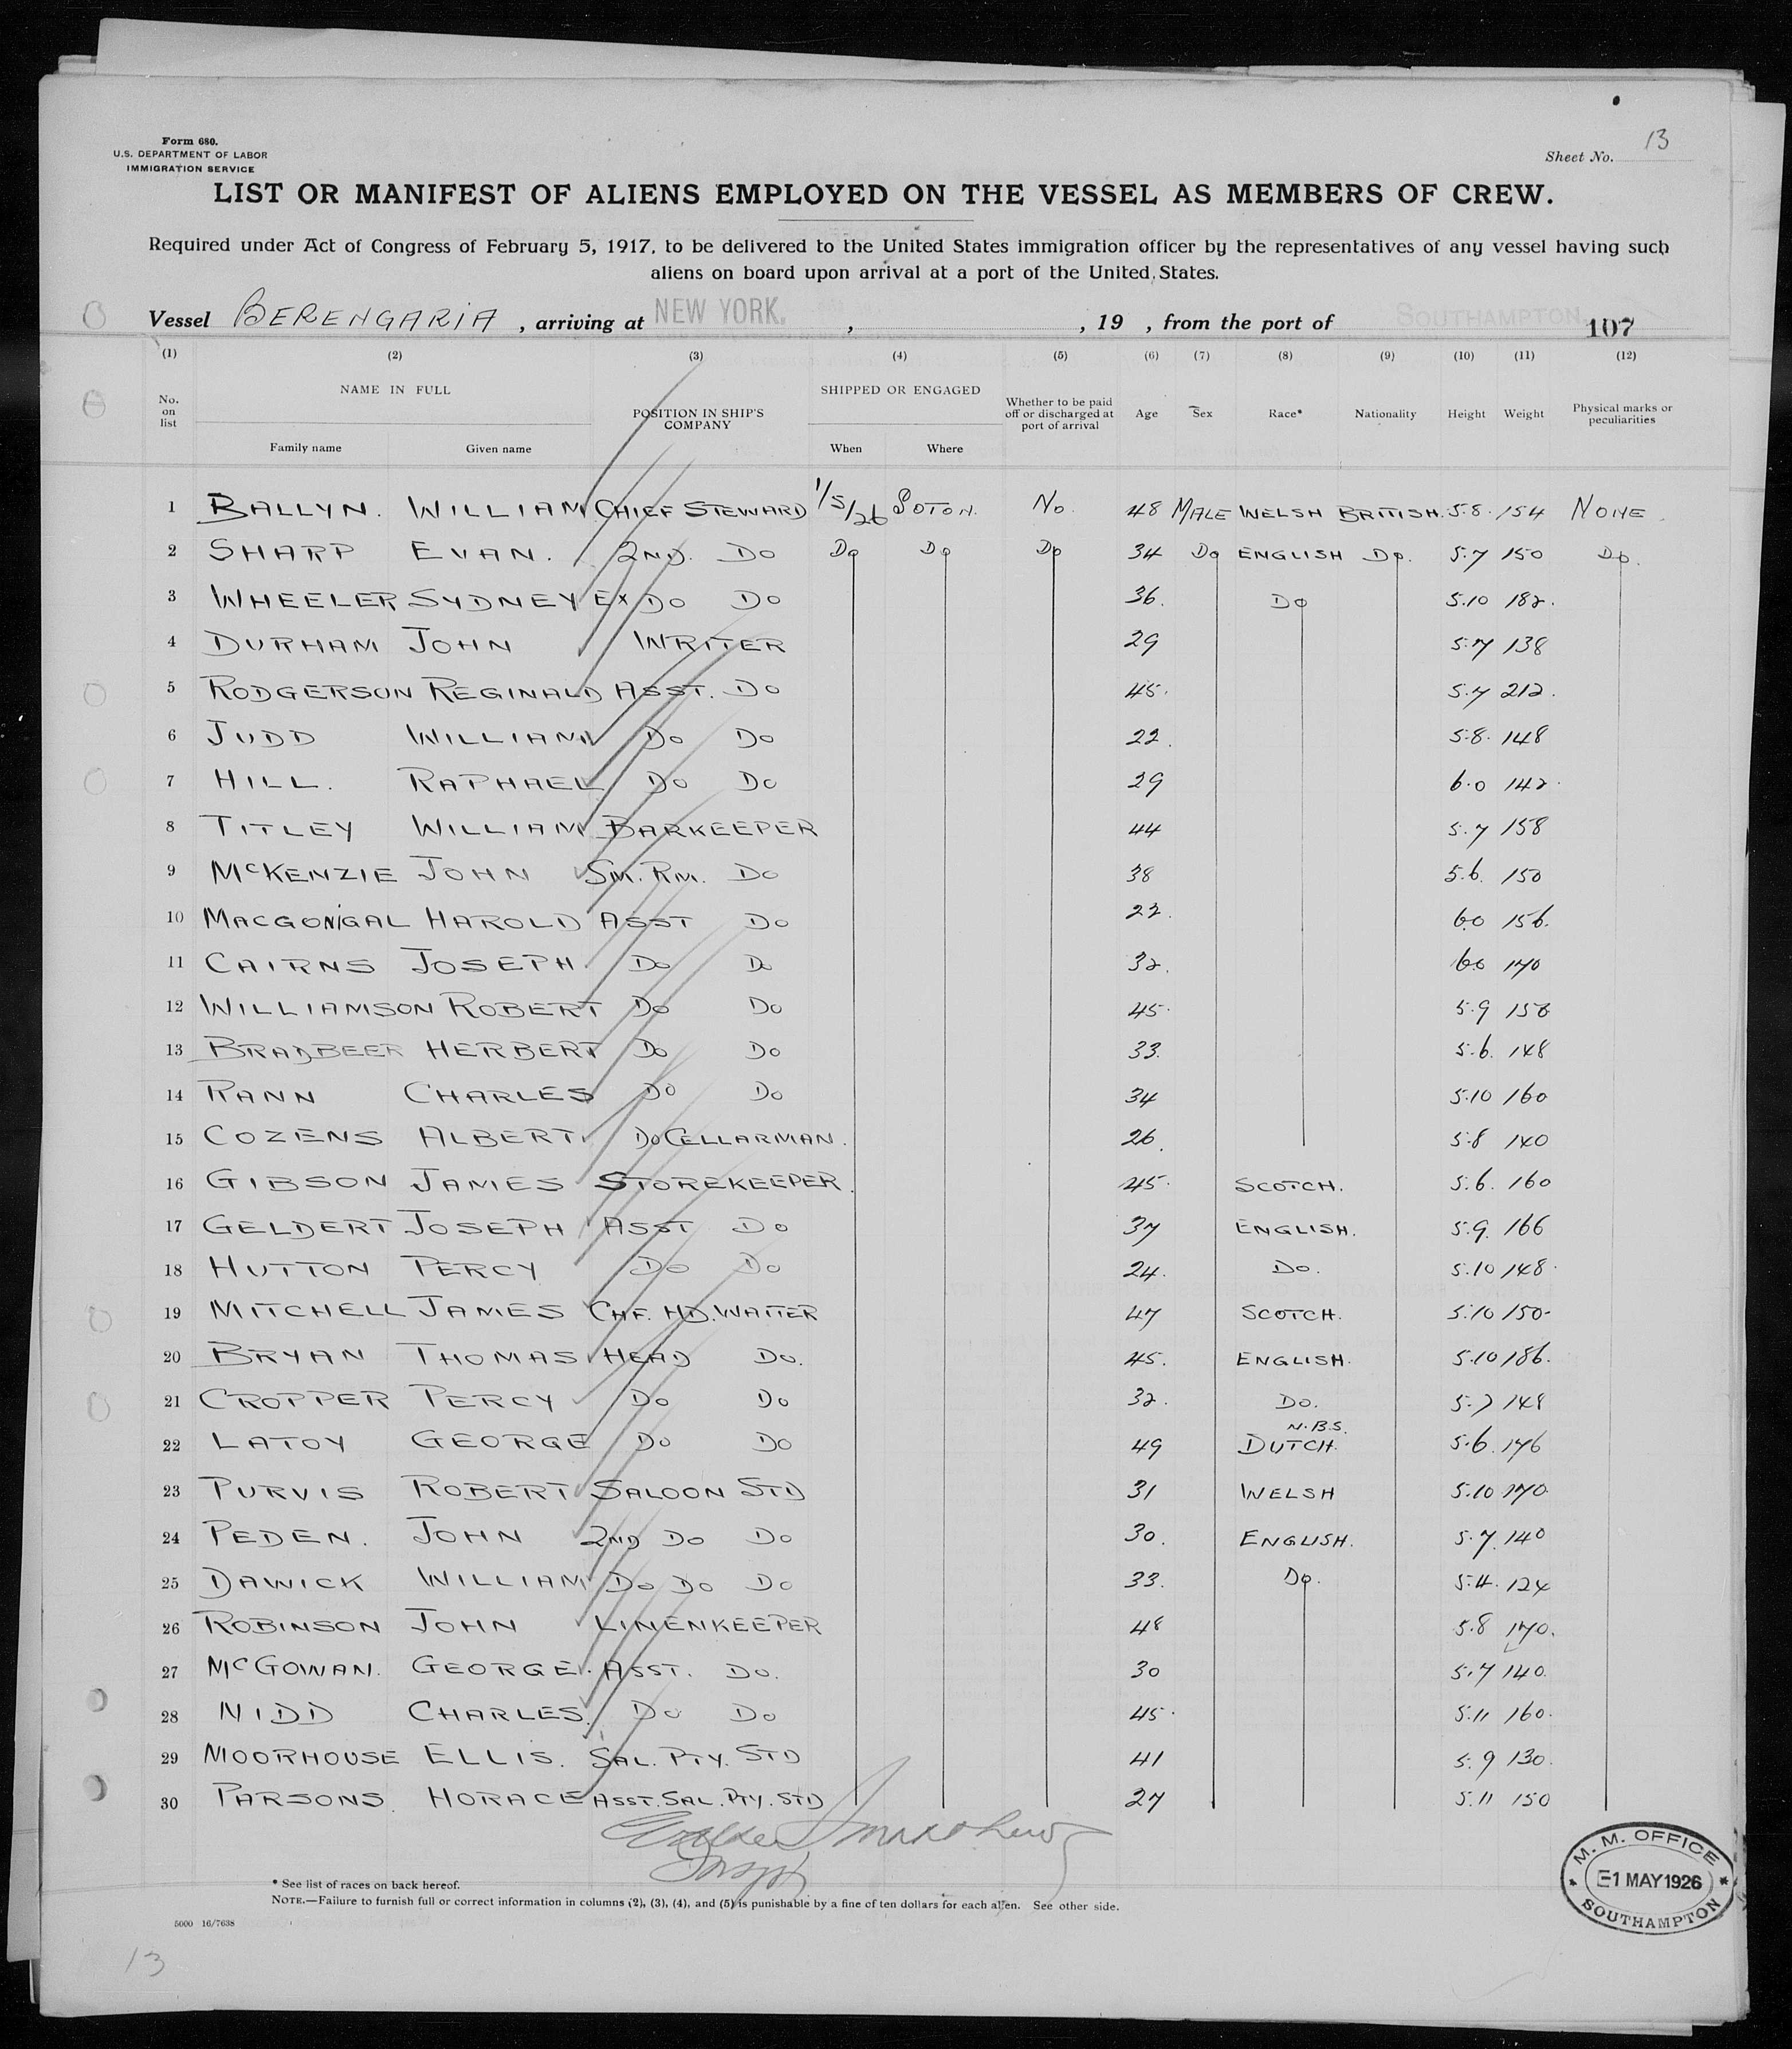 Form 680.
U.S. DEPARTMENT OF LABOR
IMMIGRATION SERVICE
Sheet No. 13
LIST OR MANIFEST OF ALIENS EMPLOYED ON THE VESSEL AS MEMBERS OF CREW.
Required under Act of Congress of February 5, 1917, to be delivered to the United States immigration officer by the representatives of any vessel having such
aliens on board upon arrival at a port of the United States.
Vessel BERENGARIA , arriving at NEW YORK. , , 19 , from the port of SOUTHAMPTON. 107
(1) (2) (3) (4) (5) (6) (7) (8) (9) (10) (11) (12)
No. on list NAME IN FULL Family name Given name POSITION IN SHIP'S COMPANY SHIPPED OR ENGAGED When Where Whether to be paid off or discharged at port of arrival Age Sex Race* Nationality Height Weight Physical marks or peculiarities
1 BALLYN. WILLIAM CHIEF STEWARD 1/5/26 SOTON. No. 48 MALE WELSH BRITISH. 5.8. 154 NONE.
2 SHARP EVAN. 2ND. DO DO DO DO 34 DO ENGLISH DO. 5.7 150 DO.
3 WHEELER SYDNEY EX DO DO 36. DO 5.10 182.
4 DURHAM JOHN WRITER 29 5.7 138
5 RODGERSON REGINALD ASST. DO 45. 5.7 212.
6 JUDD WILLIAM DO DO 22. 5.8. 148
7 HILL. RAPHAEL DO DO 29 6.0 142.
8 TITLEY WILLIAM BARKEEPER 44 5.7 158
9 McKENZIE JOHN SM. RM. DO 38 5.6. 150
10 MACGONIGAL HAROLD ASST DO 22. 6.0 156.
11 CAIRNS JOSEPH DO DO 32. 6.0 170
12 WILLIAMSON ROBERT DO DO 45. 5.9 158
13 BRADBEER HERBERT DO DO 33. 5.6. 148
14 RANN CHARLES DO DO 34 5.10 160
15 COZENS ALBERT DO CELLARMAN. 26. 5.8 140
16 GIBSON JAMES STOREKEEPER. 45. SCOTCH. 5.6. 160
17 GELDERT JOSEPH ASST DO 37 ENGLISH. 5.9. 166
18 HUTTON PERCY DO DO 24. DO. 5.10 148.
19 MITCHELL JAMES CHF. HD. WAITER 47 SCOTCH. 5.10 150
20 BRYAN THOMAS HEAD DO. 45. ENGLISH. 5.10 186.
21 CROPPER PERCY DO DO 32. DO. 5.7 148
N.B.S.
22 LATOY GEORGE DO DO 49 DUTCH. 5.6. 176
23 PURVIS ROBERT SALOON STD 31 WELSH 5.10 170.
24 PEDEN. JOHN 2ND DO DO 30. ENGLISH. 5.7. 140
25 DAWICK WILLIAM DO DO DO 33. DO. 5.4. 124
26 ROBINSON JOHN LINENKEEPER 48 5.8 170.
27 McGOWAN. GEORGE. ASST. DO. 30 5.7 140.
28 NIDD CHARLES. DO DO 45. 5.11 160.
29 MOORHOUSE ELLIS. SAL. PTY. STD 41 5.9 130.
30 PARSONS. HORACE ASST. SAL. PTY. STD 27 5.11 150
* See list of races on back hereof.
NOTE.—Failure to furnish full or correct information in columns (2), (3), (4), and (5) is punishable by a fine of ten dollars for each alien. See other side.
5000 16/7638
M. M. OFFICE
1 MAY 1926
SOUTHAMPTON
13